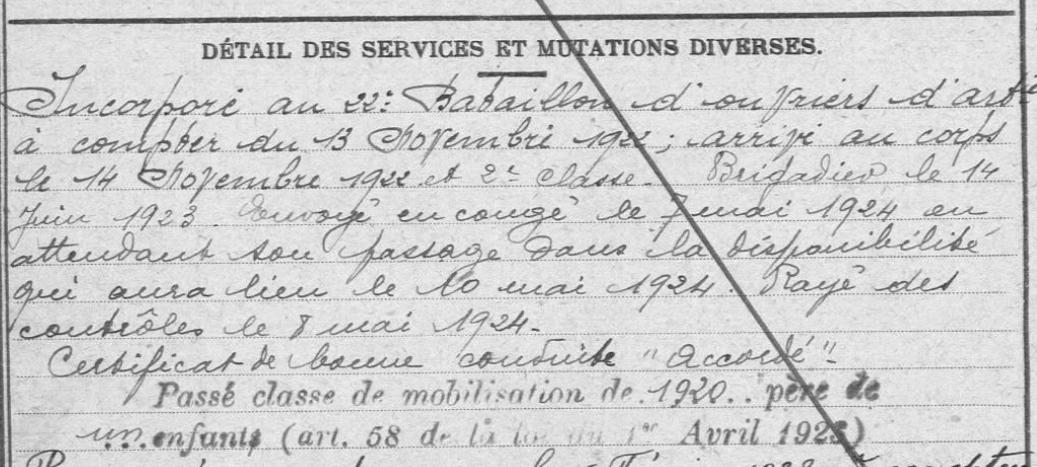 DÉTAIL DES SERVICES ET MUTATIONS DIVERSES.
Incorporé au 22e Bataillon d'ouvriers d'artie
à compter du 13 Novembre 1922 ; arrivé au corps
le 14 Novembre 1922 et 2e classe. Brigadier le 14
Juin 1923. Envoyé en congé le 7 mai 1924 en
attendant son passage dans la disponibilité
qui aura lieu le 10 mai 1924. Rayé des
contrôles le 8 mai 1924.
Certificat de bonne conduite "Accordé"
Passé classe de mobilisation de 1920.. père de
un enfants (art. 58 de la loi du 1er Avril 1923)